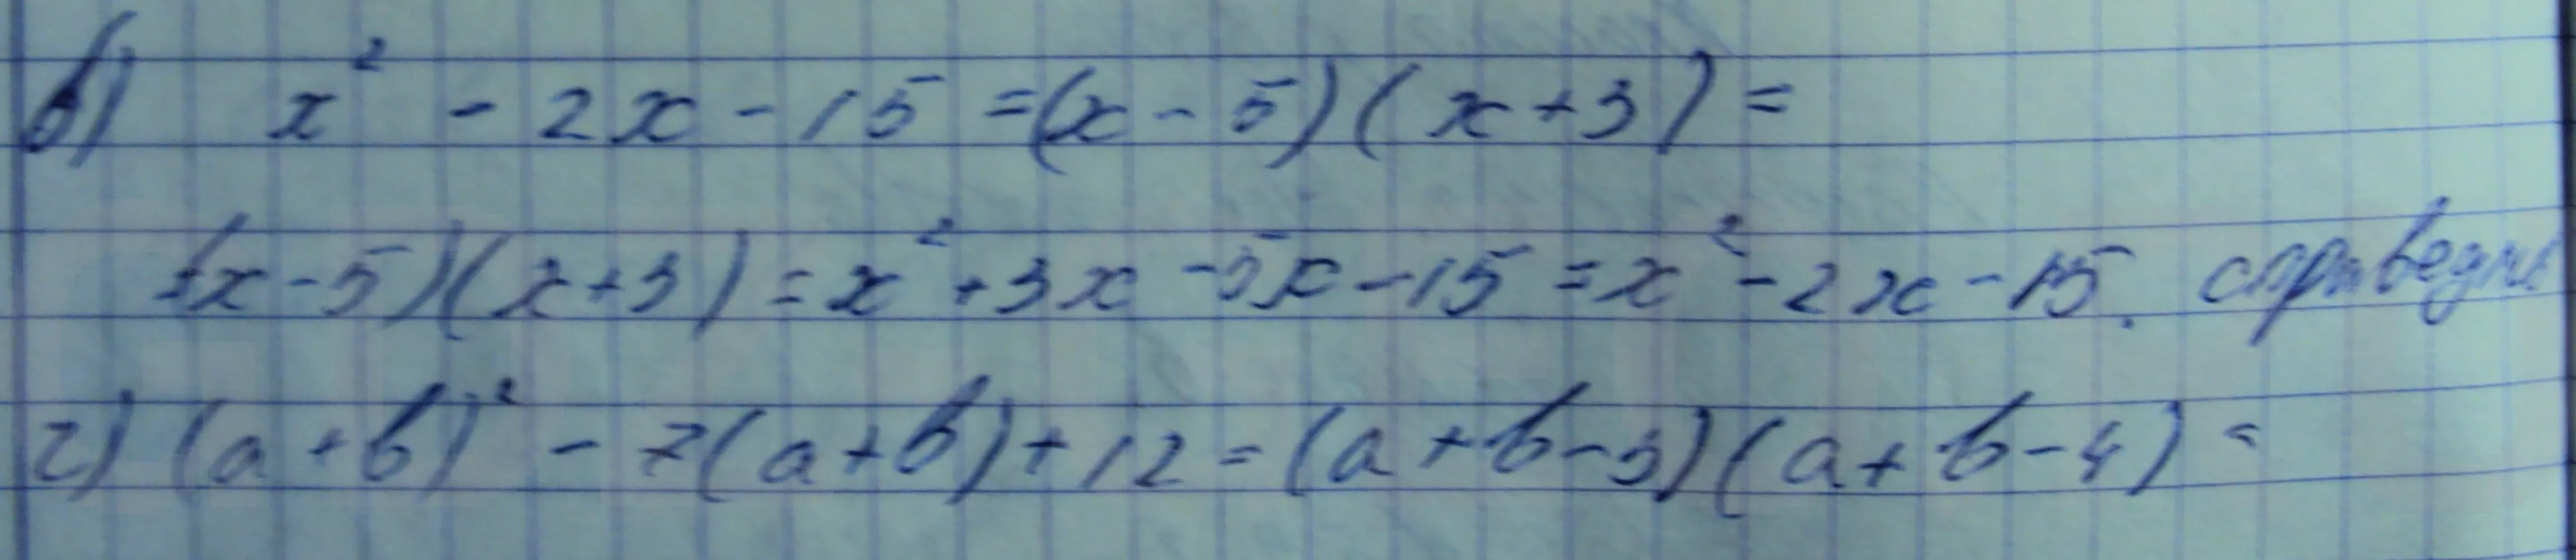 в) x² - 2x - 15 = (x - 5)(x + 3) =
(x - 5)(x + 3) = x² + 3x - 5x - 15 = x² - 2x - 15. справедли
г) (a + b)² - 7(a + b) + 12 = (a + b - 3)(a + b - 4) =